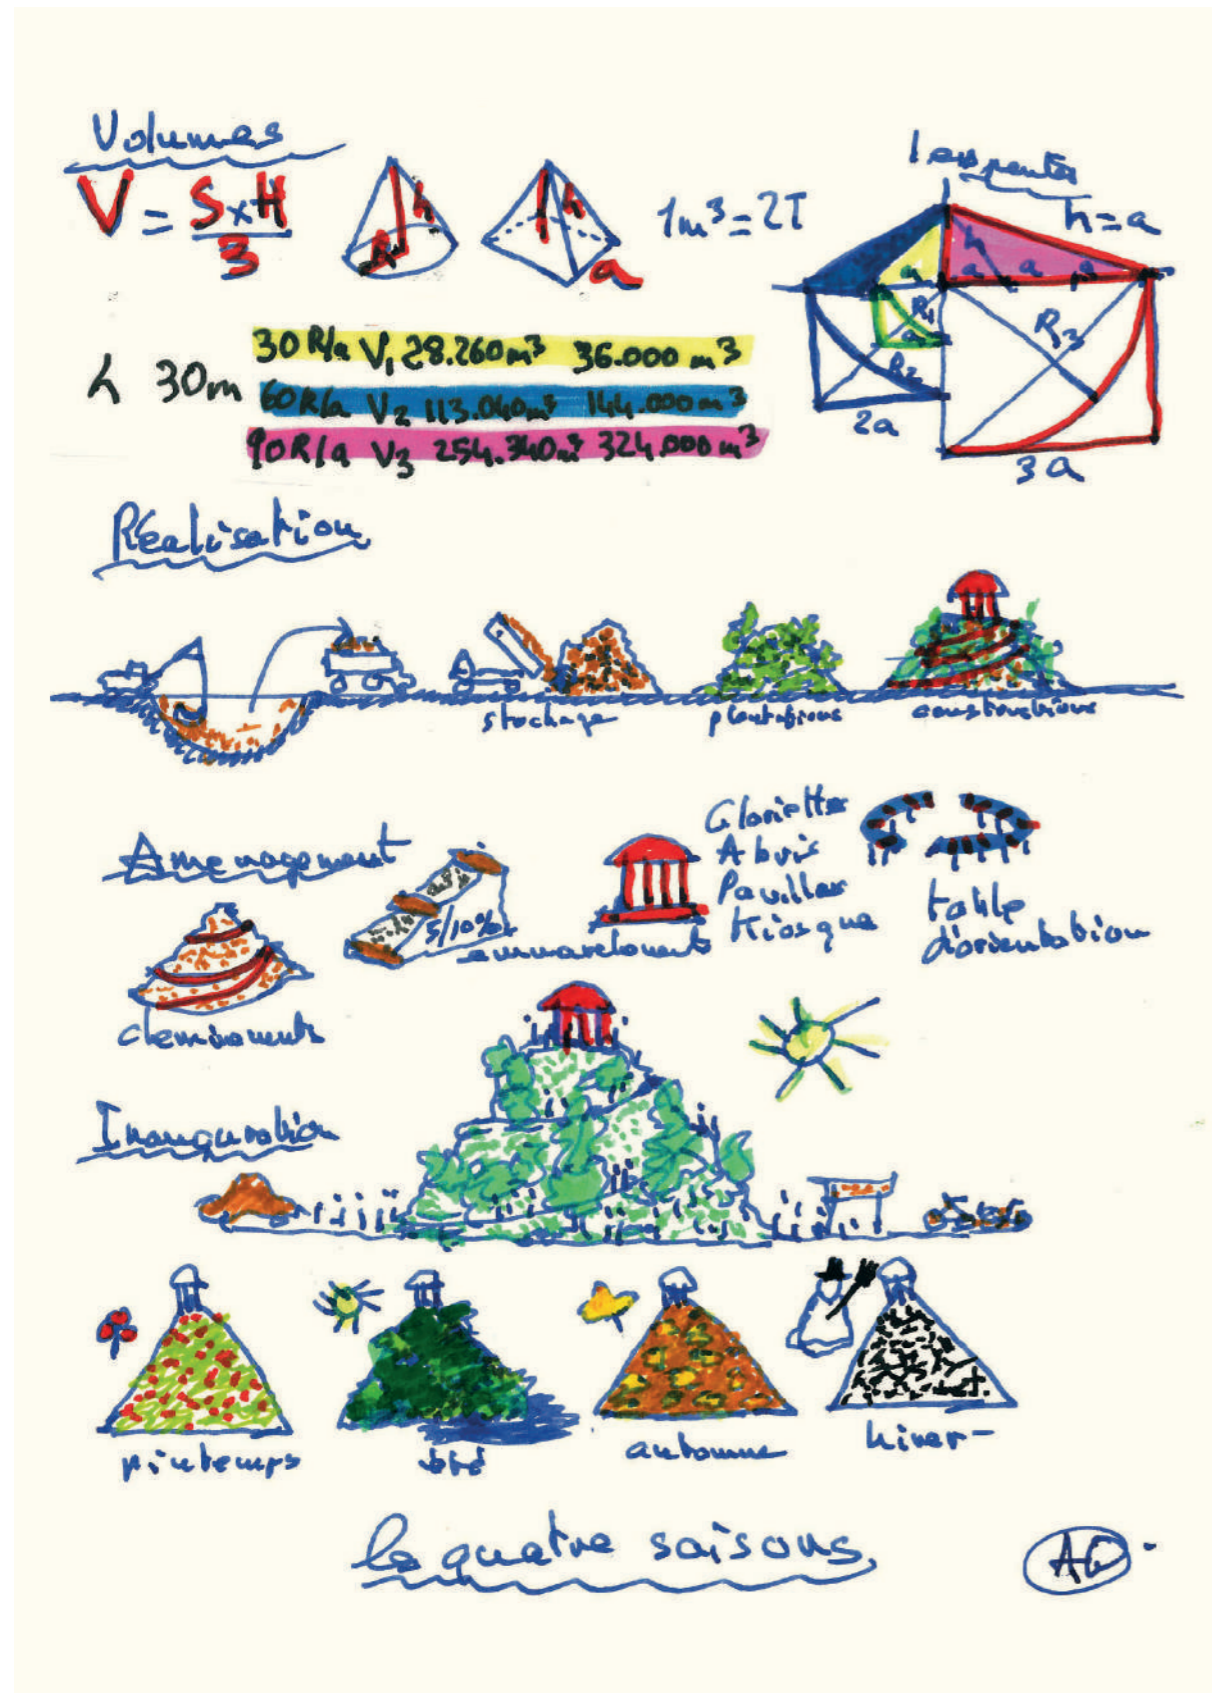 Volumes
V = S x H
3
h
R
h
a
1m³ = 2T
les pentes
h = a
h
a
a
a
a
R1
a
R2
R3
2a
3a
h 30m
30 R/a V1 28.260 m³ 36.000 m³
60 R/a V2 113.040 m³ 144.000 m³
90 R/a V3 254.340 m³ 324.000 m³
Réalisation
stockage
plantations
constructions
Aménagement
5/10%
emmarchements
Gloriette
Abris
Pavillon
Kiosque
table
d'orientation
cheminements
Inauguration
printemps
été
automne
hiver-
les quatre saisons.
AG